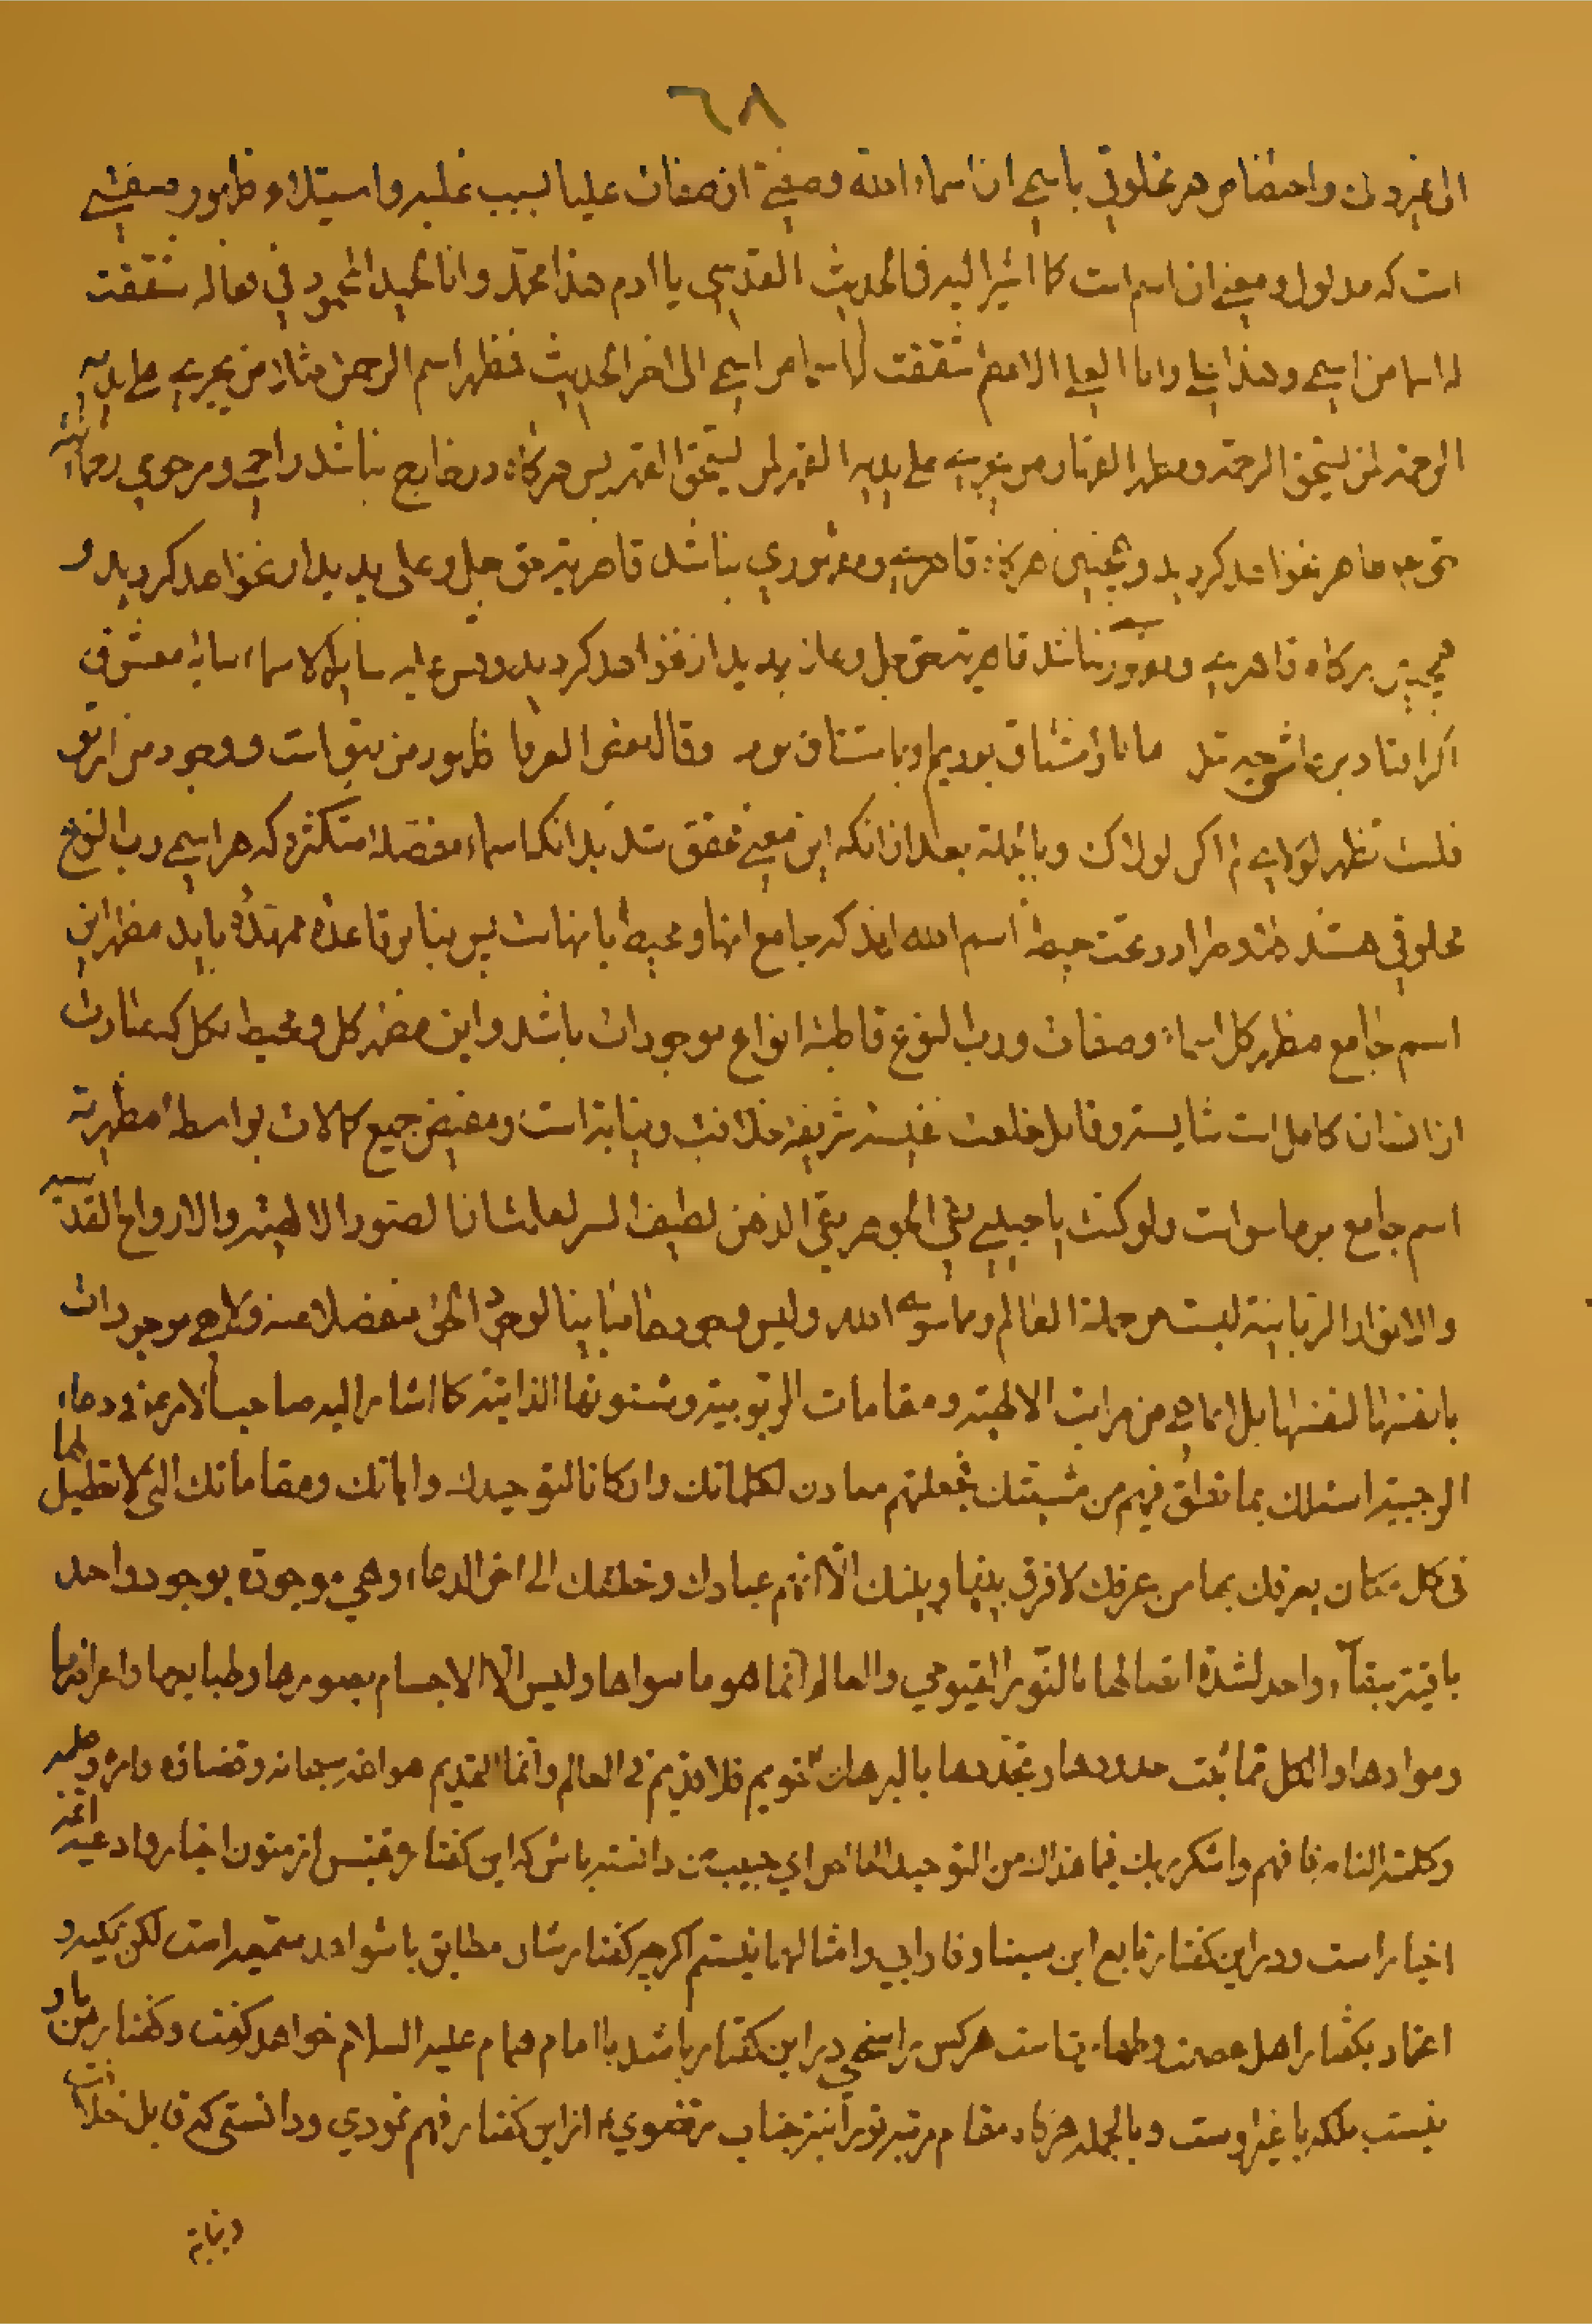 ٦٨
الی غیر ذلک و اختصاص هر مخلوقی باسمی از اسماء الله و صفتی از صفات علیا بسبب غلبه و استیلاء و ظهور صفتی
است که مدلول و معنی ان اسم است کما اشیر الیه فی الحدیث القدسی یا ادم هذا محمد و انا الحمید المحمود فی فعاله شققت
له اسما من اسمی و هذا علی و انا العلی الاعظم شققت له اسما من اسمی الی اخر الحدیث فمظهر اسم الرحمن مثلا من یجری علی یدیه
الرحمة لمن یستحق الرحمة و مظهر القهار من یجری علی یدیه القهر لمن یستحق القهر پس هرکاه در خارج نباشد راحمی و مرحومی رحمانیة
حق ظاهر نخواهد کردید و همچنین هرکاه قاهری و مقهوری نباشد قاهریة حق جل و علی پدیدار نخواهد کردید و
همچنین هرکاه قاهری و مقهور نباشد قاهریة حق جل و علا پدیدار نخواهد کردید و قس علیه سایر الاسماء سایه معشوق
اکر افتاد بر عاشق چه شد ما باو مشتاق بودیم او بما مشتاق بود و قال بعض العرفا ظهور من بتو است و وجود من از تو
فلست تظهر لولای لم اکن لولاک و بالجملة بعد از انکه این معنی محقق شد بدانکه اسماء مفصله متکثره که هر اسمی رب النوع
مخلوقی هستند طرا در تحت حیطه اسم الله اند که جامع انها و محیط بانهاست پس بنا بر قاعده ممهده باید مظهر این
اسم جامع مظهر کل اسماء و صفات و رب النوع قاطبه انواع موجودات باشد و این مظهر کل و محیط بکل که عبارت
از انسان کامل است شایسته و قابل خلعت نفیسه شریفه خلافت و نیابة است و مفیض جمیع کمالات بواسطه مظهریة
اسم جامع بر ماسواست و لو کنت یا حبیبی نقی الجوهر نقی الذهن لطیف السر لعلمت ان الصور الالهیة و الارواح القدسیه
و الانوار الربانیة لیست من جملة العالم و ما سوی الله و لیس وجودها مباینا لوجود الحق منفصلا عنه و لا هی موجودات
بانفسها لنفسها بل انما هی من مراتب الالهیة و مقامات الربوبیة و شئونها الذاتیة کما اشار الیه صاحب الامر عج فی دعاء
الرجبیة اسئلک بما نطق فیهم من مشیتک فجعلتهم معادن لکلماتک و ارکانا لتوحیدک و ایاتک و مقاماتک التی لا تعطیل لها
فی کل مکان یعرفک بها من عرفک لا فرق بینها و بینک الا انهم عبادک و خلقک الی اخر الدعاء و هی موجودة بوجود واحد
باقیة ببقاء واحد لشدة اتصالها بالنور القیومی و العالم انما هو ما سواها و لیس الا الاجسام بصورها و طبایعها و اعراضها
و موادها و الکل مما ثبت حدوثها و تجددها بالبرهان القویم فلا قدیم فی العالم و انما القدیم هو الله سبحانه و قضاؤه و امره و علمه
و کلمته التامه فافهم و اشکر ربک فیما هداک من التوحید الخاص ای حبیب من دانسته باش که این کفتار مقتبس از متون اخبار و ادعیه ائمه
اخیار است و در این کفتار تابع ابن سینا و فارابی و امثالهما نیستم اکرچه کفتارشان مطابق باشواهد سمعیه است لکن تکیه و
اعتماد بکفتار اهل عصمت و طهارتست هرکس را سخنی در این کفتار باشد باامام همام علیه السلام خواهد کفت و کفتار من باو
نیست بلکه با غیر اوست و بالجمله هرکاه مقام مرتبه نورانیة جناب مرتضوی را از این کفتار فهم نمودی و دانستی که قابل خلافت
و نیابة